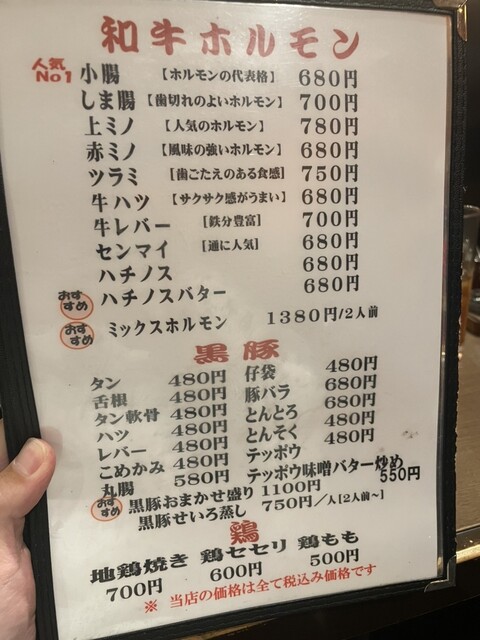 和牛ホルモン
人気No1 小腸 【ホルモンの代表格】 680円
しま腸 【歯切れのよいホルモン】 700円
上ミノ 【人気のホルモン】 780円
赤ミノ 【風味の強いホルモン】 680円
ツラミ 【歯ごたえのある食感】 750円
牛ハツ 【サクサク感がうまい】 680円
牛レバー 【鉄分豊富】 700円
センマイ 【通に人気】 680円
ハチノス 680円
おすすめ ハチノスバター 680円
おすすめ ミックスホルモン 1380円/2人前
黒豚
タン 480円 仔袋 480円
舌根 480円 豚バラ 680円
タン軟骨 480円 とんとろ 680円
ハツ 480円 とんそく 480円
レバー 480円 テッポウ 480円
こめかみ 480円 テッポウ味噌バター炒め 550円
丸腸 580円
おすすめ 黒豚おまかせ盛り 1100円
黒豚せいろ蒸し 750円/人[2人前~]
鶏
地鶏焼き 鶏セセリ 鶏もも
700円 600円 500円
※ 当店の価格は全て税込み価格です